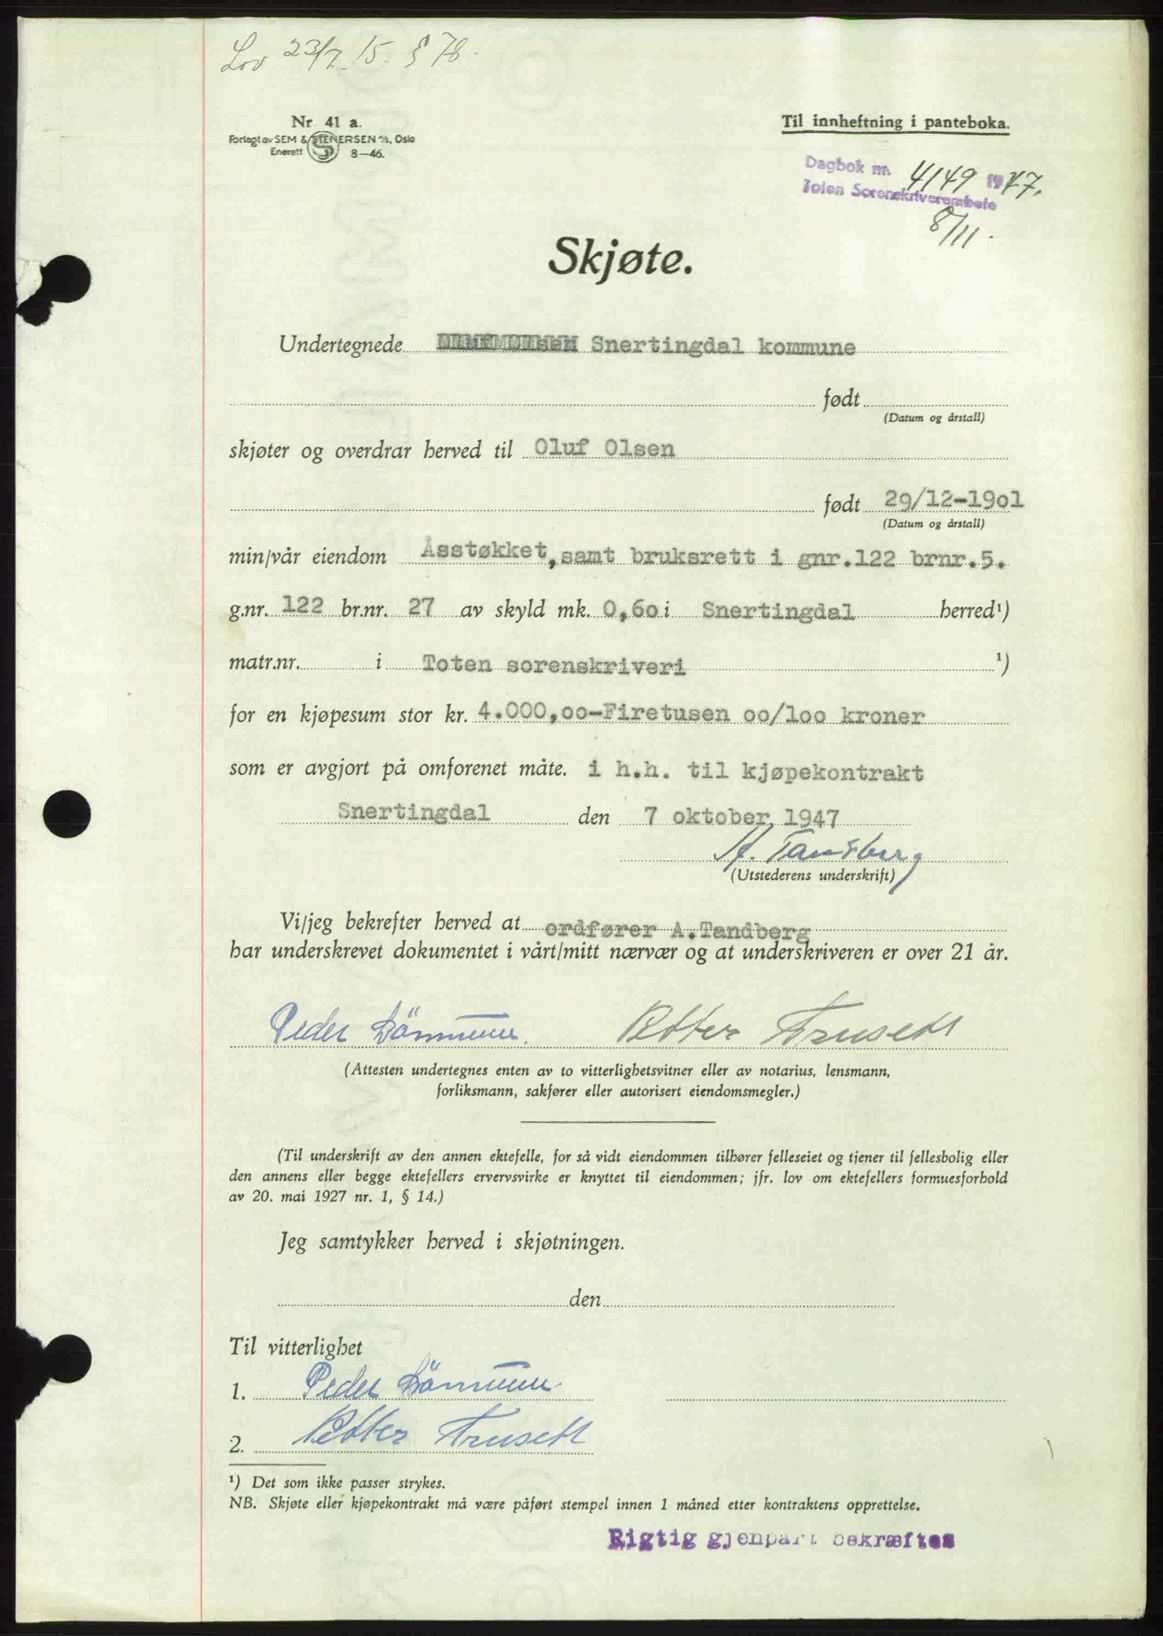 Lov 23/7. 15. § 78.
Nr 41 a.
Til innheftning i panteboka.
Forlagt av SEM & STENERSEN A/S, Oslo
Enerett 8—46.
Dagbok nr. 4149 1947.
Toten Sorenskriverembete
8/11.
Skjøte.
Undertegnede Snertingdal kommune
født
(Datum og årstall)
skjøter og overdrar herved til Oluf Olsen
født 29/12-19o1
(Datum og årstall)
min/vår eiendom Åsstøkket, samt bruksrett i gnr.122 brnr.5.
g.nr. 122 br.nr. 27 av skyld mk. 0,6o i Snertingdal herred¹)
matr.nr. i Toten sorenskriveri ¹)
for en kjøpesum stor kr. 4.000,oo-Firetusen oo/loo kroner
som er avgjort på omforenet måte. i h.h. til kjøpekontrakt
Snertingdal den 7 oktober 1947
A. Tandberg
(Utstederens underskrift)
Vi/jeg bekrefter herved at ordfører A.Tandberg
har underskrevet dokumentet i vårt/mitt nærvær og at underskriveren er over 21 år.
Peder Petter
(Attesten undertegnes enten av to vitterlighetsvitner eller av notarius, lensmann,
forliksmann, sakfører eller autorisert eiendomsmegler.)
(Til underskrift av den annen ektefelle, for så vidt eiendommen tilhører felleseiet og tjener til fellesbolig eller
den annens eller begge ektefellers ervervsvirke er knyttet til eiendommen; jfr. lov om ektefellers formuesforhold
av 20. mai 1927 nr. 1, § 14.)
Jeg samtykker herved i skjøtningen.
den
Til vitterlighet
1. Peder
2. Petter
¹) Det som ikke passer strykes.
NB. Skjøte eller kjøpekontrakt må være påført stempel innen 1 måned etter kontraktens opprettelse.
Rigtig gjenpart bekræftes